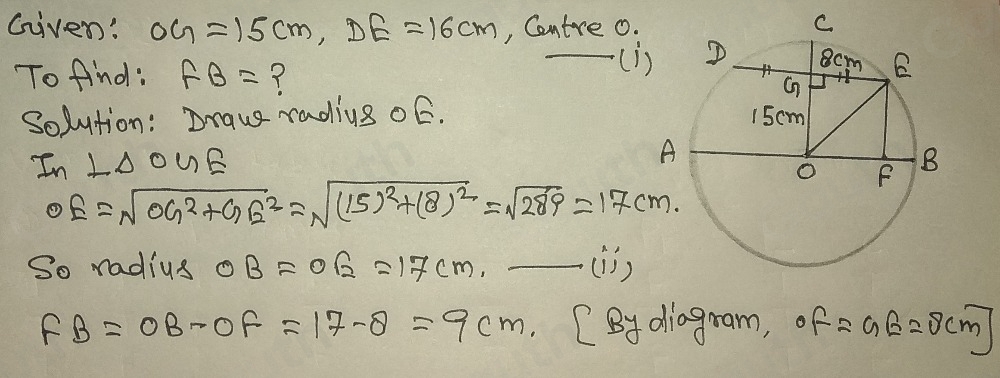 Given: OG = 15cm, DE = 16cm, Centre O.
—(i)
To find: FB = ?
Solution: Draw radius OE.
In L△ OGE
OE = √OG²+GE² = √(15)²+(8)² = √289 = 17cm.
So radius OB = OE = 17cm. —(ii)
FB = OB - OF = 17-8 = 9cm. [By diagram, OF = GE = 8cm]
C
D
8cm
E
G
15cm
A
O
F
B